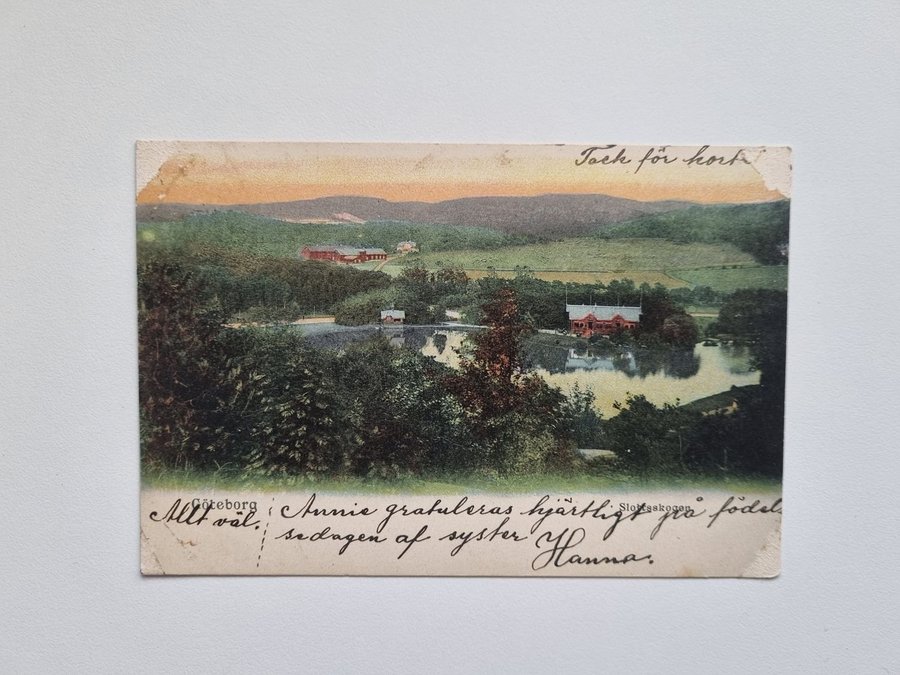 Tack för kortet
Göteborg
Slottsskogen
Allt väl.
Annie gratuleras hjärtligt på födel-
sedagen af syster
Hanna.